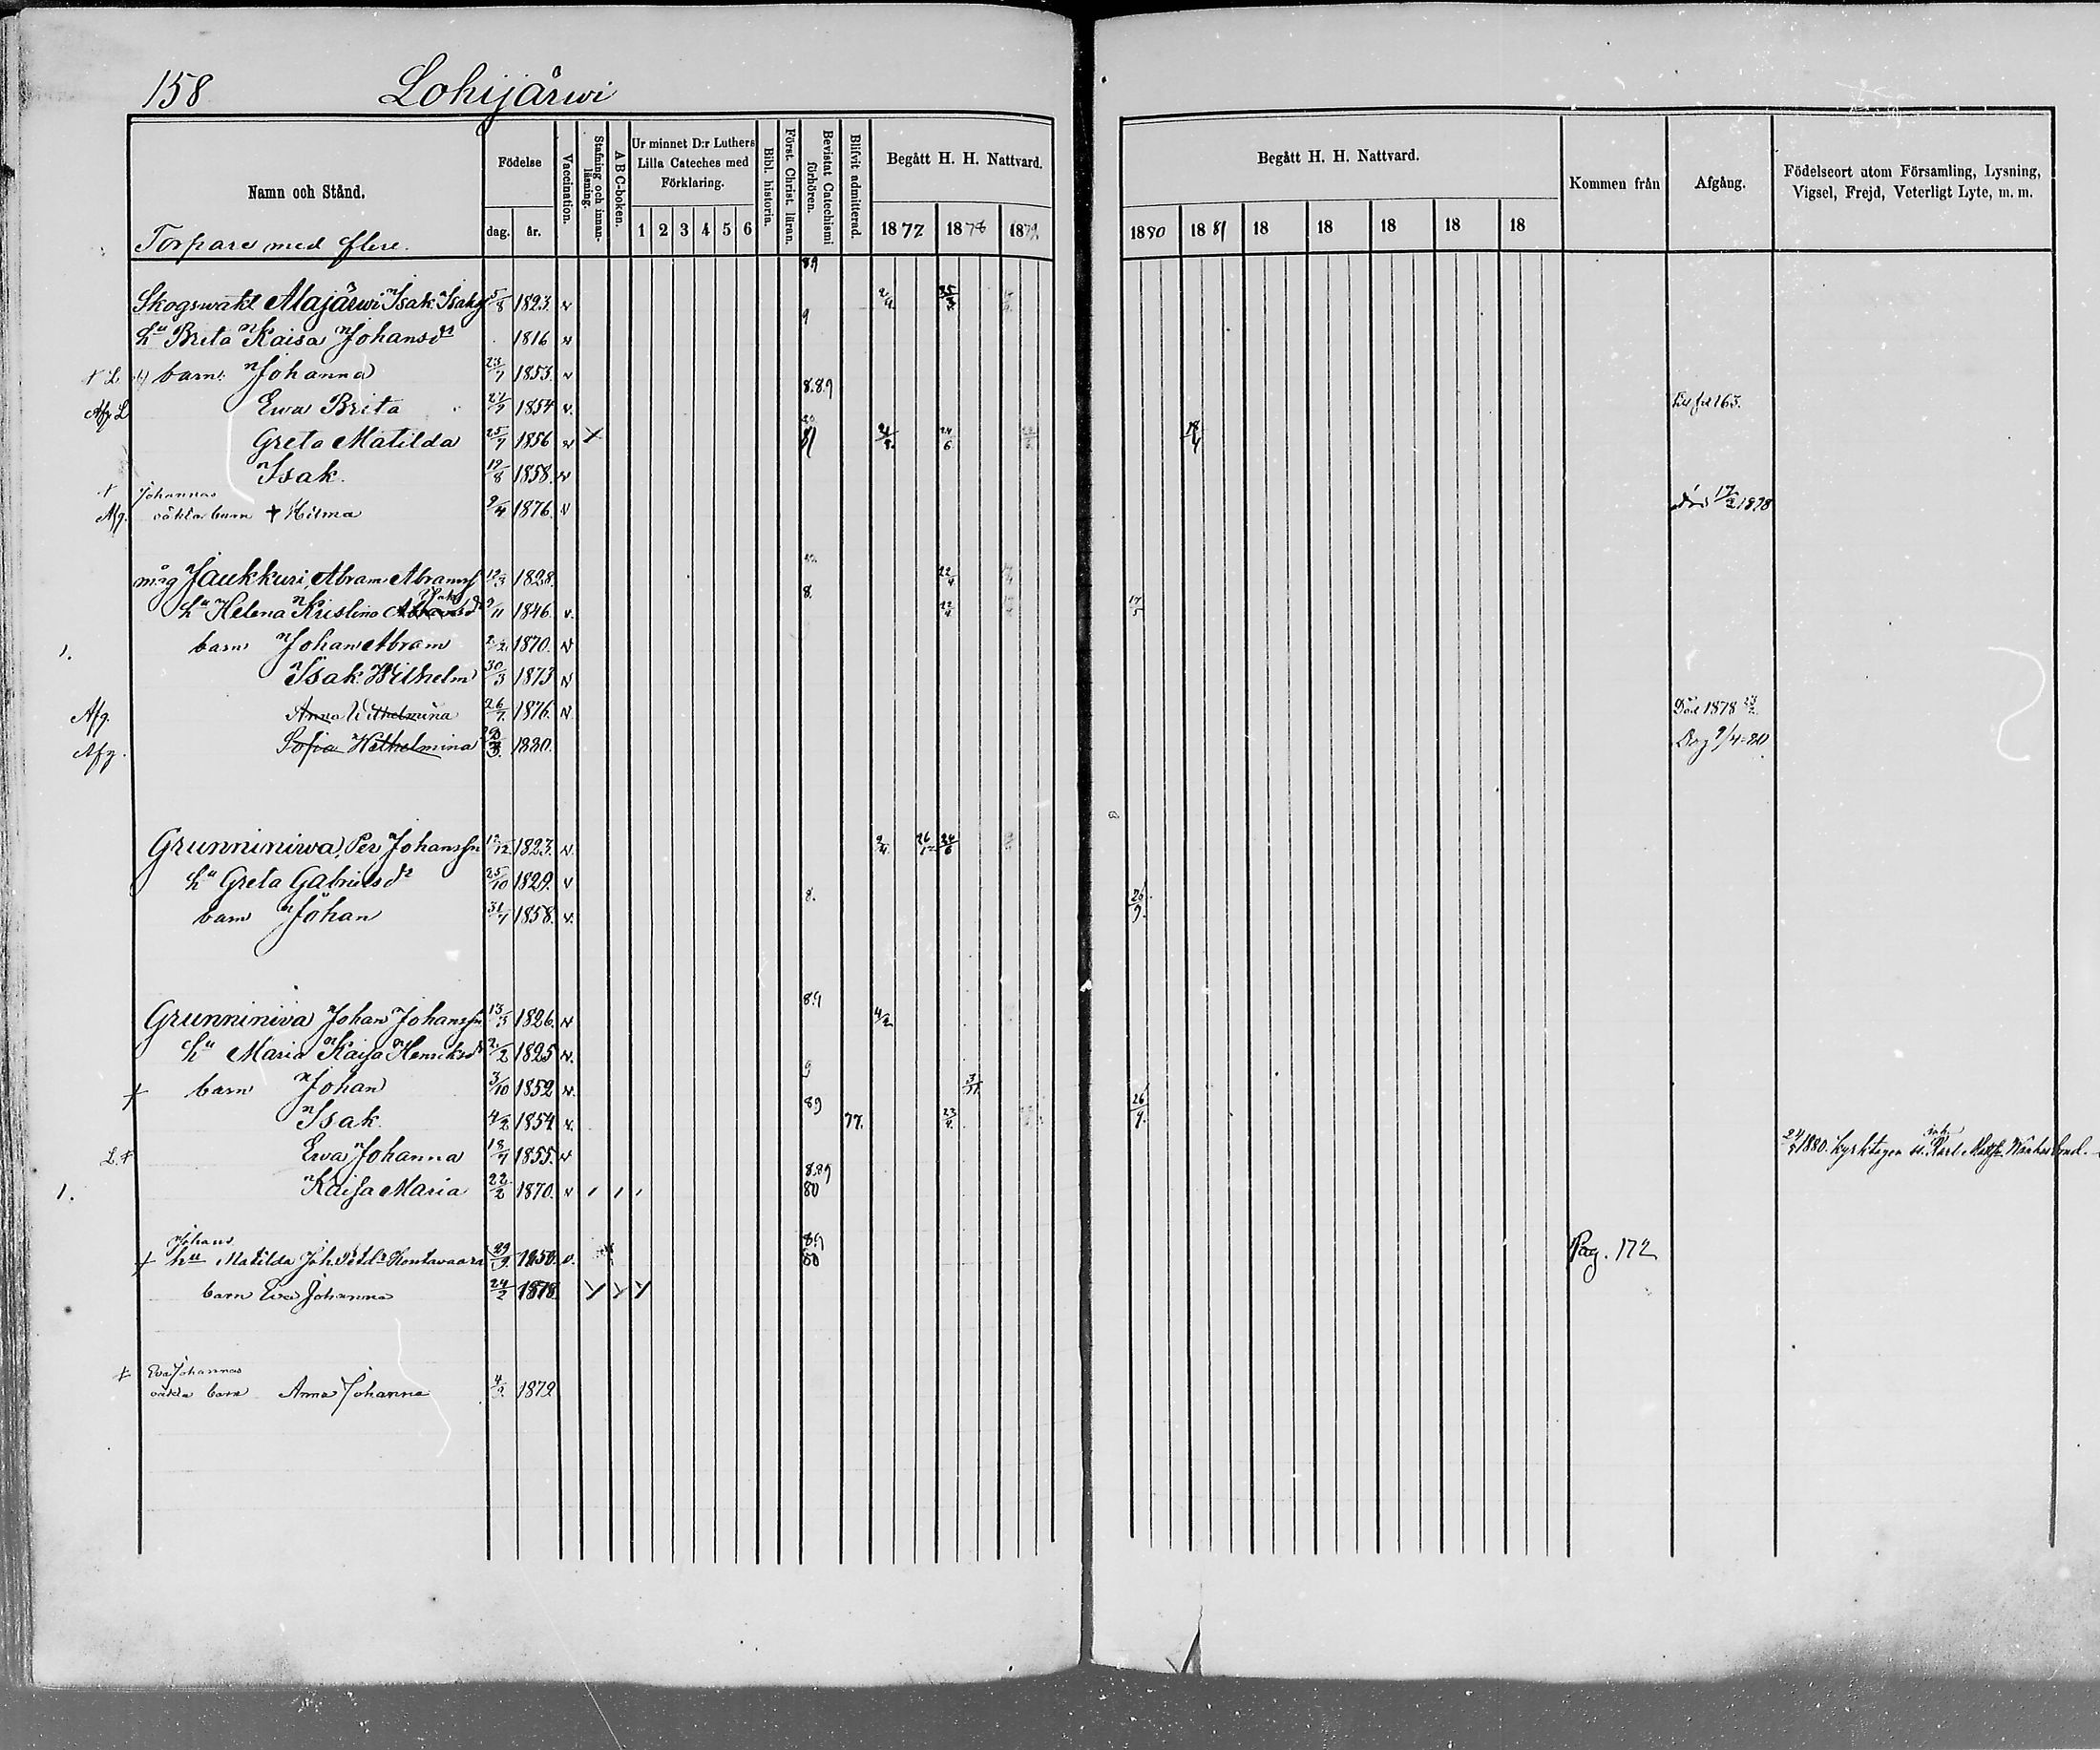 158 Lohijärwi
Namn och Stånd. Födelse Vaccination. Stafning och innan-läsning. ABC-boken. Ur minnet D:r Luthers Lilla Cateches med Förklaring. Bibl. historia. Först. Christ. läran. Bevistat Catechismi förhören. Blifvit admitterad. Begått H. H. Nattvard. Begått H. H. Nattvard. Kommen från Afgång. Födelseort utom Församling, Lysning, Vigsel, Frejd, Veterligt Lyte, m. m.
dag. år. 1 2 3 4 5 6 1877 1878 1879 1880 1881 18 18 18 18 18
Torpare med flere.
89
Skogswakt Alajärwi Isak Isaksf 5/8 1823. v 25/3
hu Brita Kaisa Johansdr 1816 v 9
barn: Johanna 1853. v
Afg L Ewa Brita 1854 v. 8.89 Till fol 163.
Greta Matilda 25/7 1856 v 81 24/6
Isak. 19/8 1858. v
Johannas
Afg. oäkta barn + Hilma 9/4 1876. v död 17/2 1878
måg Jaukkuri, Abram Abramsf 12/3 1828. 22/4
hu Helena Kristina Abramsdr 9/11 1846. v. 8. 22/4 17/5
1. barn Johan Abram 1870. v
Isak Wilhelm 30/3 1873 v
Afg. Anna Wilhelmina 26/7. 1876. v Död 1878
Afg. Sofia Wilhelmina 1880. 9/4-80
Grunniniwa, Per Johansfn 12/12 1823. v. 24/6
hu Greta Gabrielsdr 25/10 1829. v
barn Johan 31/7 1858. v. 8. 26/9.
Grunniniva Johan Johansfn 13/3 1826. v 89 4/2
hu Maria Kaisa Henriksdr 2/2 1825 v.
+ barn Johan 3/10 1852 v. 9
Isak. 4/2 1854 v. 89 77. 26/9.
L + Ewa Johanna 18/7 1855. v 24/9 1880. kyrktagen
1. Kaisa Maria 22/2 1870. v 8.89 80
Johans
+ hu Matilda Joh. Petdr Kontavaara 29/9. 1850. v. 89 80 Pag. 172
barn Eva Johanna 24/2 1878
+ Eva Johannas
oäkta barn Anna Johanna 1879